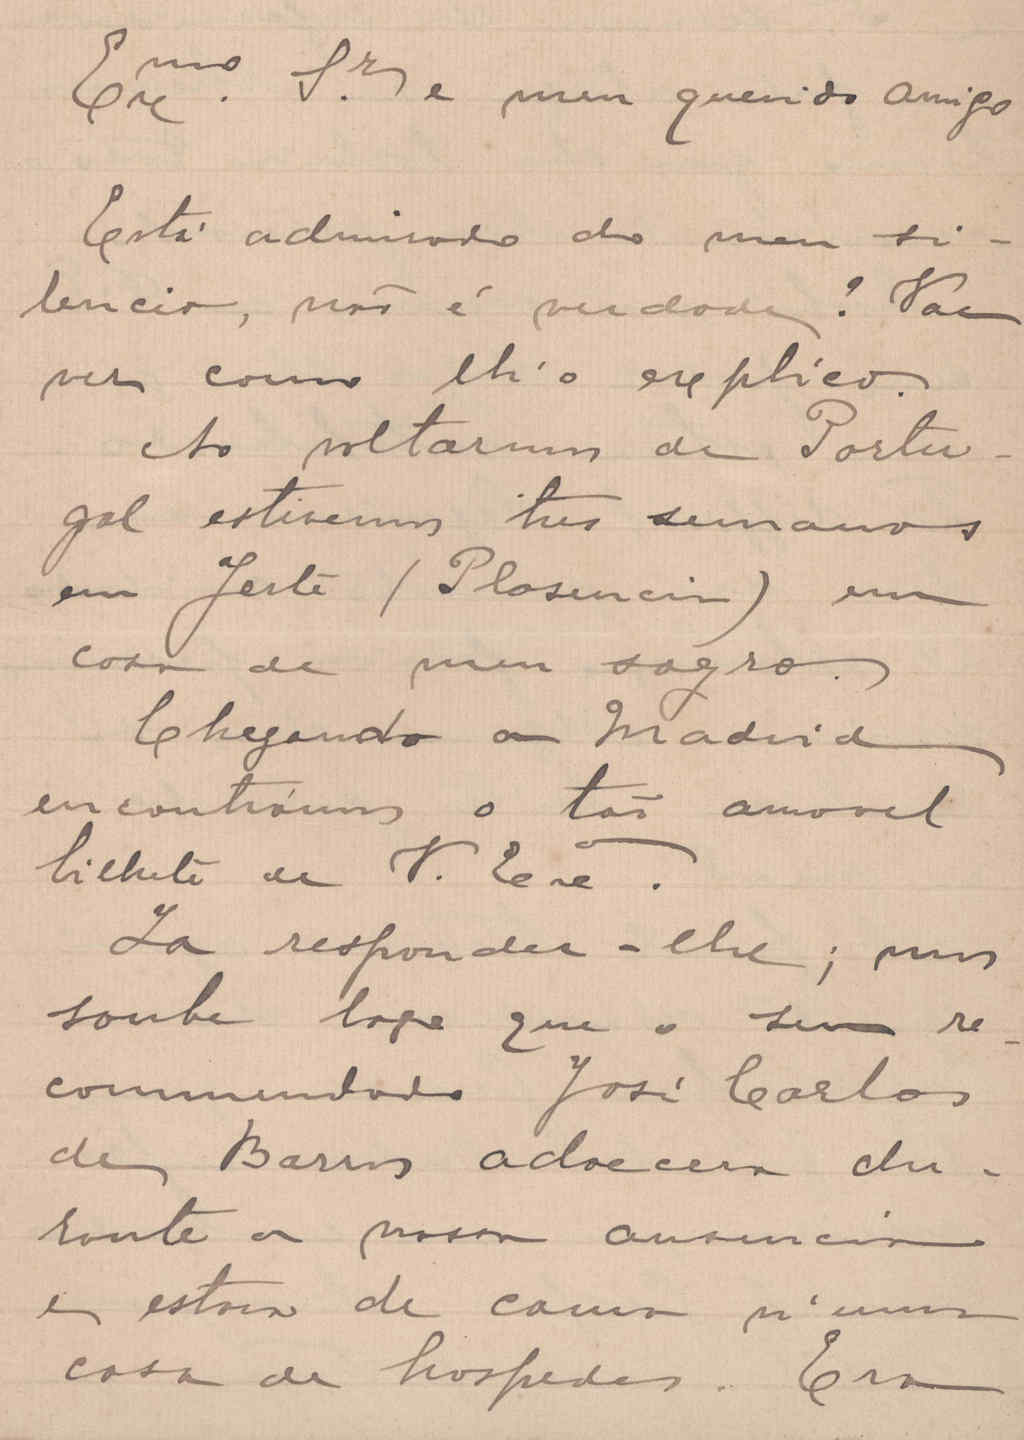 Exmo. Sr. e meu querido amigo
Está admirado do meu si-
lencio, não é verdade? Vae
ver como lh'o explico.
Ao voltarmos de Portu-
gal estivemos tres semanas
em Jerte (Plasencia) em
casa de meu sogro.
Chegando a Madrid
encontrámos o tão amavel
bilhete de V. Exª.
Ia responder-lhe; mas
soube logo que o seu re-
commendado José Carlos
de Barros adoecera du-
rante a nossa ausencia
e estava de cama n'uma
casa de hospedes. Era